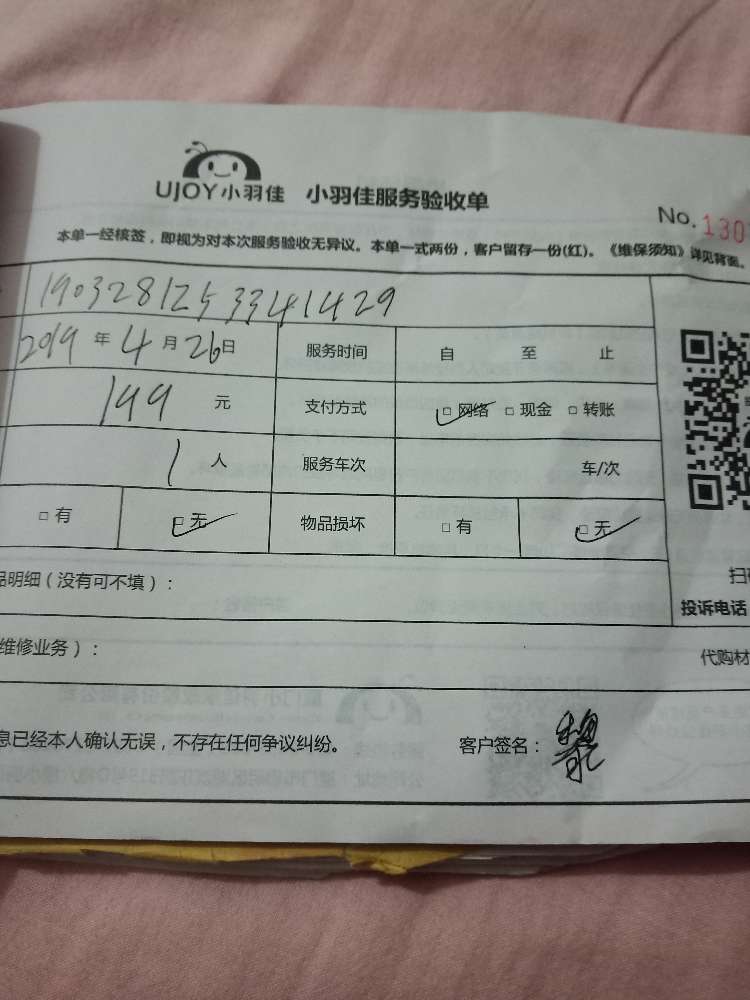 UJOY小羽佳 小羽佳服务验收单
No. 130
本单一经核签，即视为对本次服务验收无异议。本单一式两份，客户留存一份(红)。《维保须知》详见背面。
1903281253341429
2019 年 4 月 26 日 服务时间 自 至 止
199 元 支付方式 □ 网络 □ 现金 □ 转账
1 人 服务车次 车/次
□ 有 □ 无 物品损坏 □ 有 □ 无
品明细（没有可不填）：
投诉电话
维修业务）：
代购材
息已经本人确认无误，不存在任何争议纠纷。 客户签名：黎